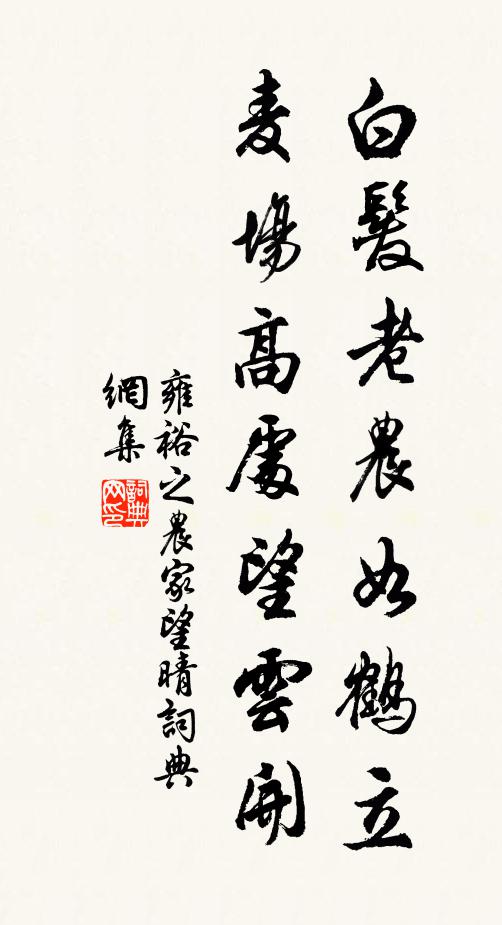 白髮老農如鶴立
麦場高處望雲開
雍裕之農家望晴詞典
網集
詞典
网印